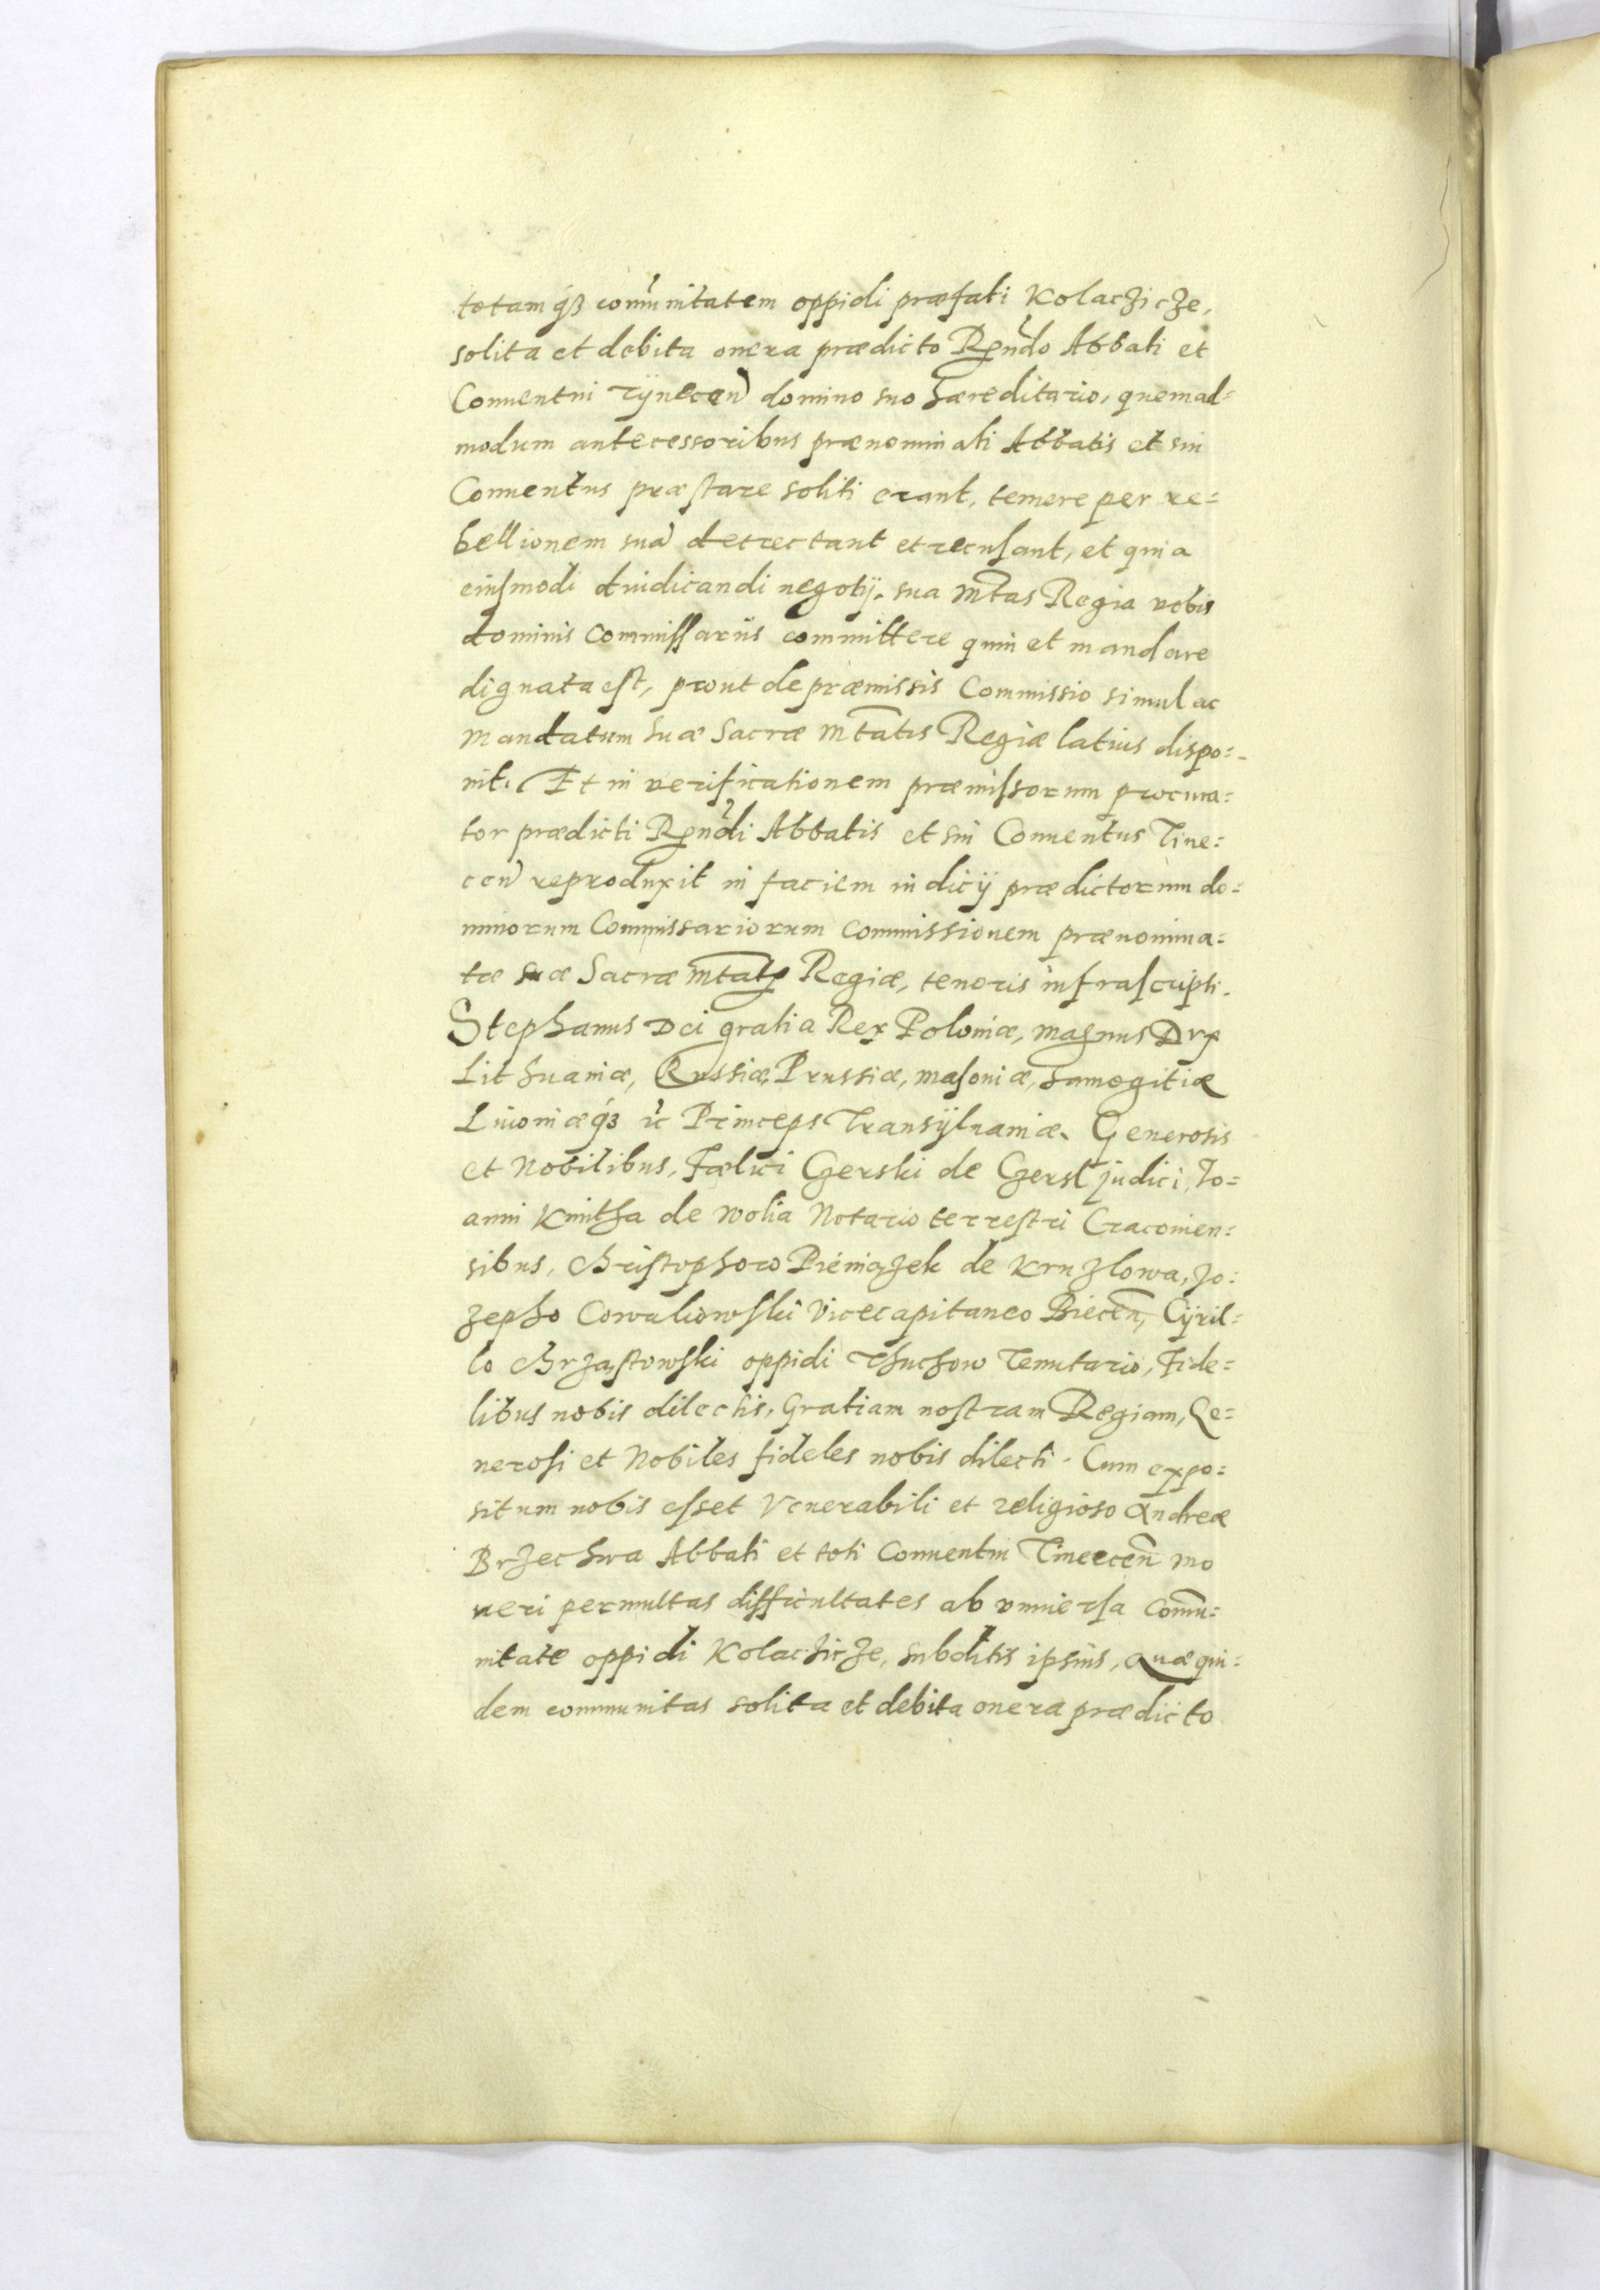 totamq́ꝫ com̃unitatem oppidi præfati Kolaczicze,
solita et debita onera prædicto Rn̄do Abbati et
Conuentui Tÿnecen̄ domino suo hæreditario, quemad=
modum antecessoribus prænominati Abbatis et sui
Conuentus præstare soliti erant, temere per re=
bellionem suā detrectant et recusant, et quia
eiusmodi diudicandi negotij. sua Mt̄as Regia vobis
dominis Commissariis committere quin et mandare
dignata est, prout de præmissis Commissio simul ac
Mandatum suæ Sacræ Mt̄atis Regiæ latius dispo=
nit. Et in verificationem præmissorum procura=
tor prædicti Rn̄di Abbatis et sui Conuentus Tine=
cen̄ reproduxit in faciem iudicij prædictorum do=
minorum Commissariorum Commissionem prænomina=
tæ suæ Sacræ Mt̄atis Regiæ, tenoris infrascripti.
Stephanus Dei gratia Rex Poloniæ, Magnus Dux
Lithuaniæ, Russiæ, Prussiæ, Masouiæ, Samogitiæ
Liuoniæq́ꝫ ꝛc Princeps Transÿluaniæ. Generosis
et Nobilibus, Fælici Czerski de Czersk judici, Jo=
anni Kmitha de Wolia Notario terrestri Cracouien=
sibus, Christophoro Pieniązek de Kruzlowa, Jo=
zepho Cowaliowski Vicecapitaneo Biecen̄, Cÿril=
lo Chrząstowski oppidi Thuchow Tenutario, Fide=
libus nobis dilectis, Gratiam nostram Regiam, Ge=
nerosi et Nobiles fideles nobis dilecti. Cum expo=
situm nobis esset Venerabili et religioso Andreæ
Brzechwa Abbati et toti Conuentui Tineecen̄ mo
ueri permultas difficultates ab vniuersa Com̄u=
nitate oppidi Kolaczicze, subditis ipsius, Quæ qui=
dem communitas solita et debita onera prædicto